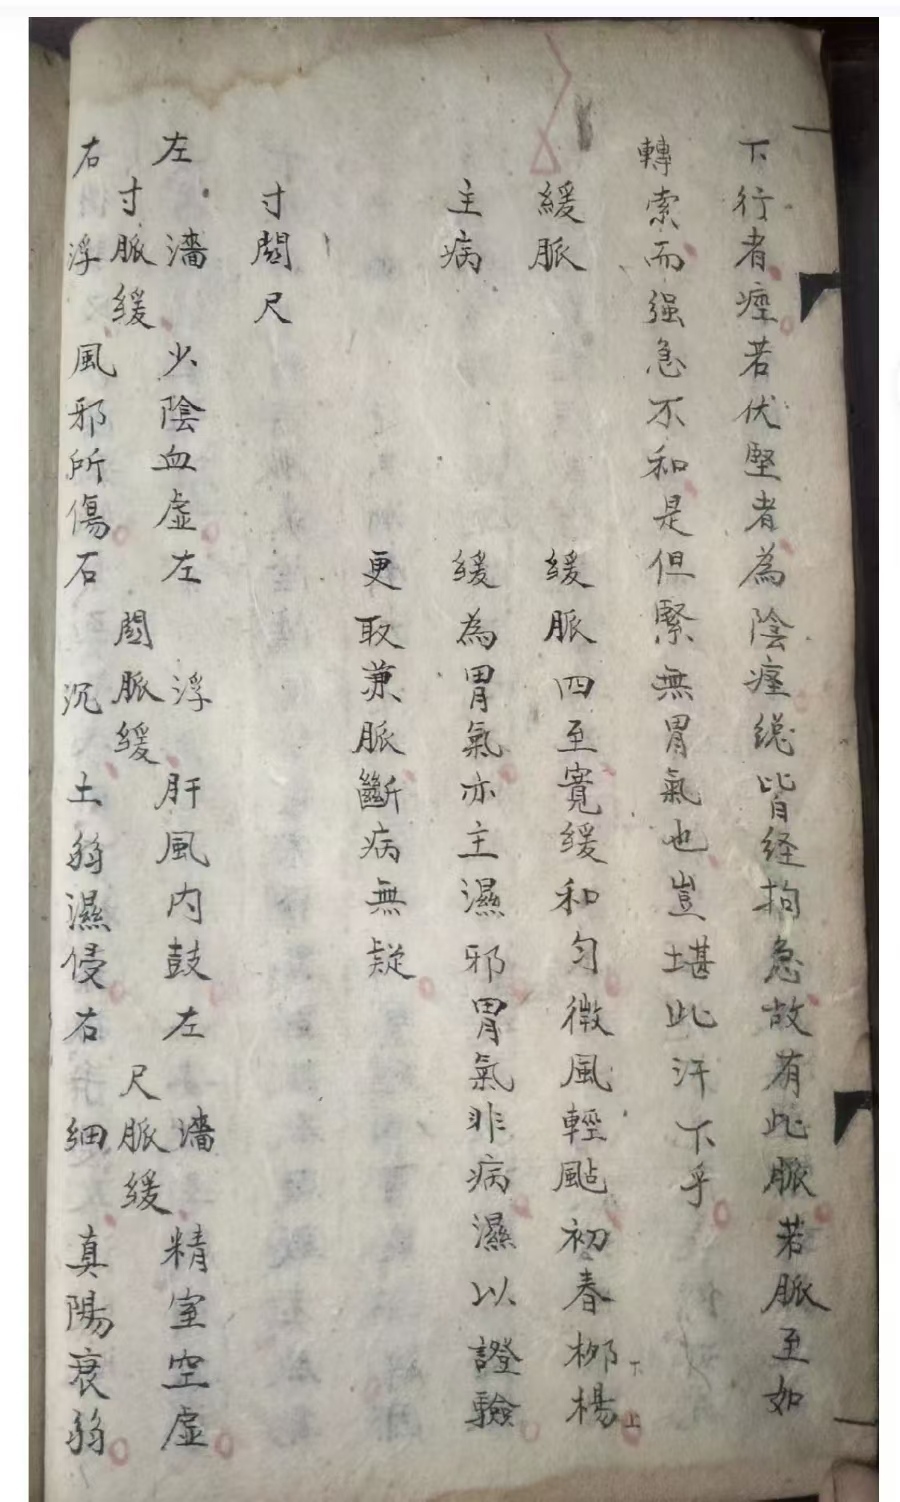 下行者痙若伏堅者為陰痙緫皆経拘急故有此脈若脈至如
轉索而强急不和是但緊無胃氣也豈堪此汗下乎
緩脈　緩脈四至寛緩和匀微風輕颭初春栁楊
下上
主病　緩為胃氣亦主濕邪胃氣非病濕以證驗
更取兼脈斷病無疑
寸關尺
左　濇　少陰血虛左　浮　肝風内鼓左　濇　精室空虛
寸脈緩　關脈緩　尺脈緩
右　浮　風邪所傷右　沉　土弱濕侵右　細　真陽衰弱